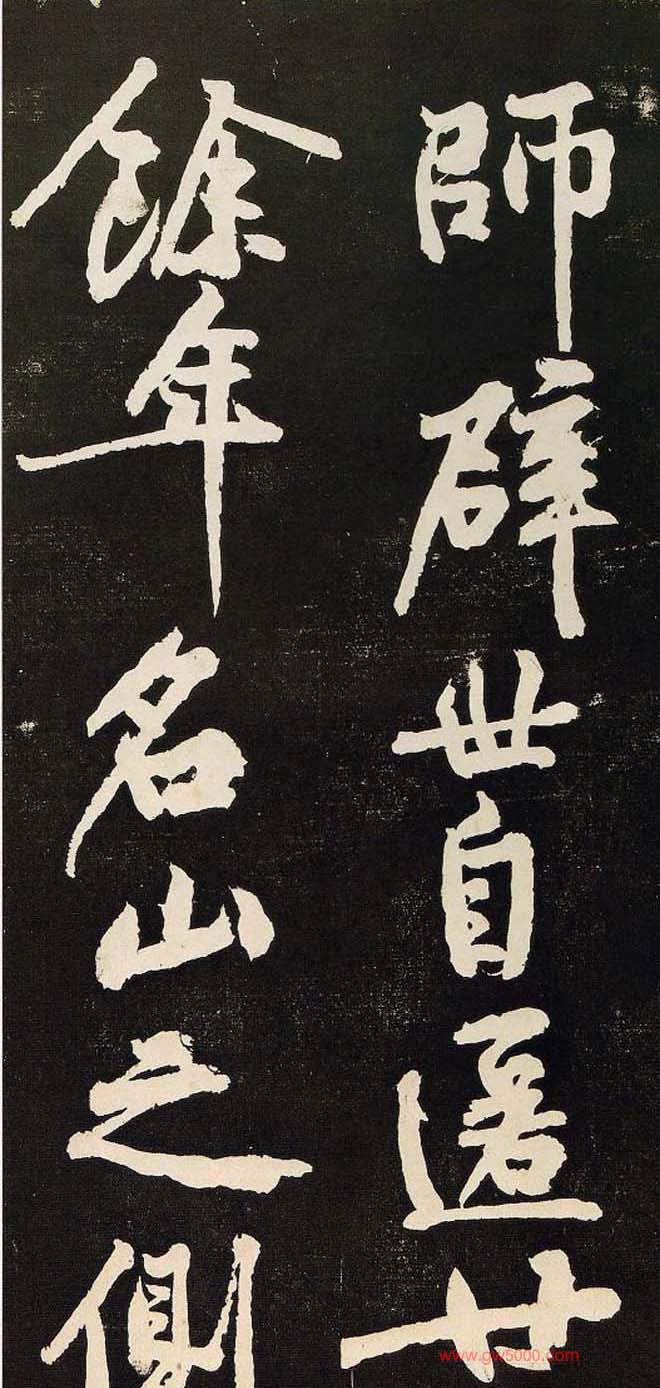 師辟世自匿廿
餘年名山之側
www.gw5000.com